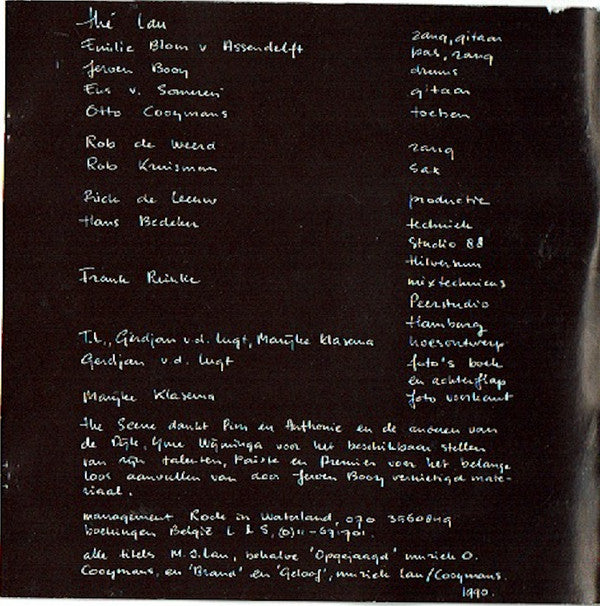 thé Lau zang, gitaar
Emilie Blom v Assendelft bas, zang
Jeroen Booy drums
Eus v. Someren gitaar
Otto Cooymans toetsen
Rob de Weerd zang
Rob Kruisman sax
Rick de Leeuw productie
Hans Bedeker techniek
Studio 88
Hilversum
Frank Reinke mixtechnicus
Peerstudio
Hamburg
T.L., Gerdjan v.d. Lugt, Marijke Klasema hoesontwerp
Gerdjan v.d. Lugt foto's boek
en achterflap
Marijke Klasema foto voorkant
the Scene dankt Pim en Anthonie en de anderen van
de Dijk, Yme Wijninga voor het beschikbaar stellen
van zijn talenten, Paiste en Premier voor het belange
loos aanvullen van door Jeroen Booy vernietigd mate-
riaal.
management Rock in Waterland, 070 3560849
boekingen België L & S, (0)11-671701.
alle titels M.J. Lau, behalve 'Opgejaagd' muziek O.
Cooymans, en 'Brand' en 'Geloof', muziek Lau/Cooymans.
1990.